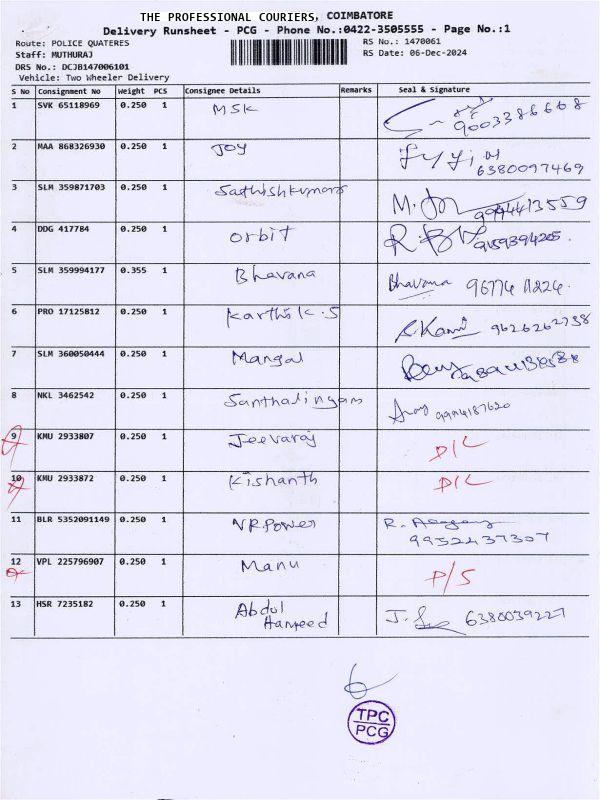 THE PROFESSIONAL COURIERS, COIMBATORE
Delivery Runsheet - PCG - Phone No.:0422-3505555 - Page No.:1
Route: POLICE QUATERES
RS No.: 1470061
Staff: MUTHURAJ
RS Date: 06-Dec-2024
DRS No.: DCJB147006101
Vehicle: Two Wheeler Delivery
S No Consignment No Weight PCS Consignee Details Remarks Seal & Signature
1 SVK 65118969 0.250 1 MSK
2 MAA 868326930 0.250 1 JOY 6380097469
3 SLM 359871703 0.250 1 Sathishkumar
4 DDG 417784 0.250 1 orbit
5 SLM 359994177 0.355 1 Bhavana Bhavana
6 PRO 17125812 0.250 1 Karthik.S 9626262738
7 SLM 360050444 0.250 1 Mangal
8 NKL 3462542 0.250 1 Santhalingam 9994187620
9 KMU 2933807 0.250 1 Jeevaraj D/L
10 KMU 2933872 0.250 1 Kishanth D/L
11 BLR 5352091149 0.250 1 VR Power 9952437307
12 VPL 225796907 0.250 1 Manu P/S
13 HSR 7235182 0.250 1 Abdul Hameed 6380039227
TPC
PCG